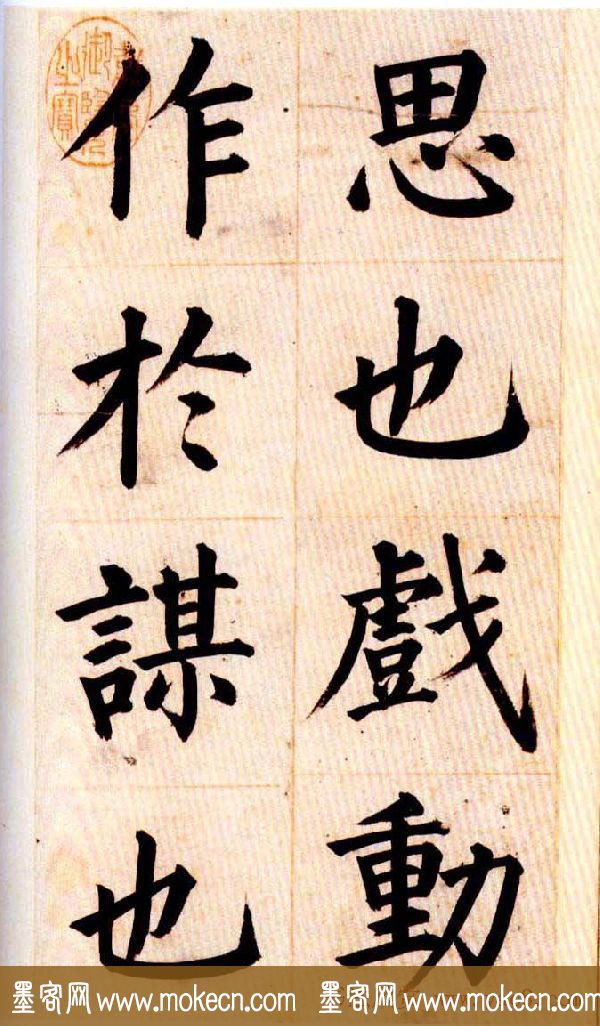 思也戲動
作於謀也
墨客网 www.mokecn.com 墨客网 www.mokecn.com